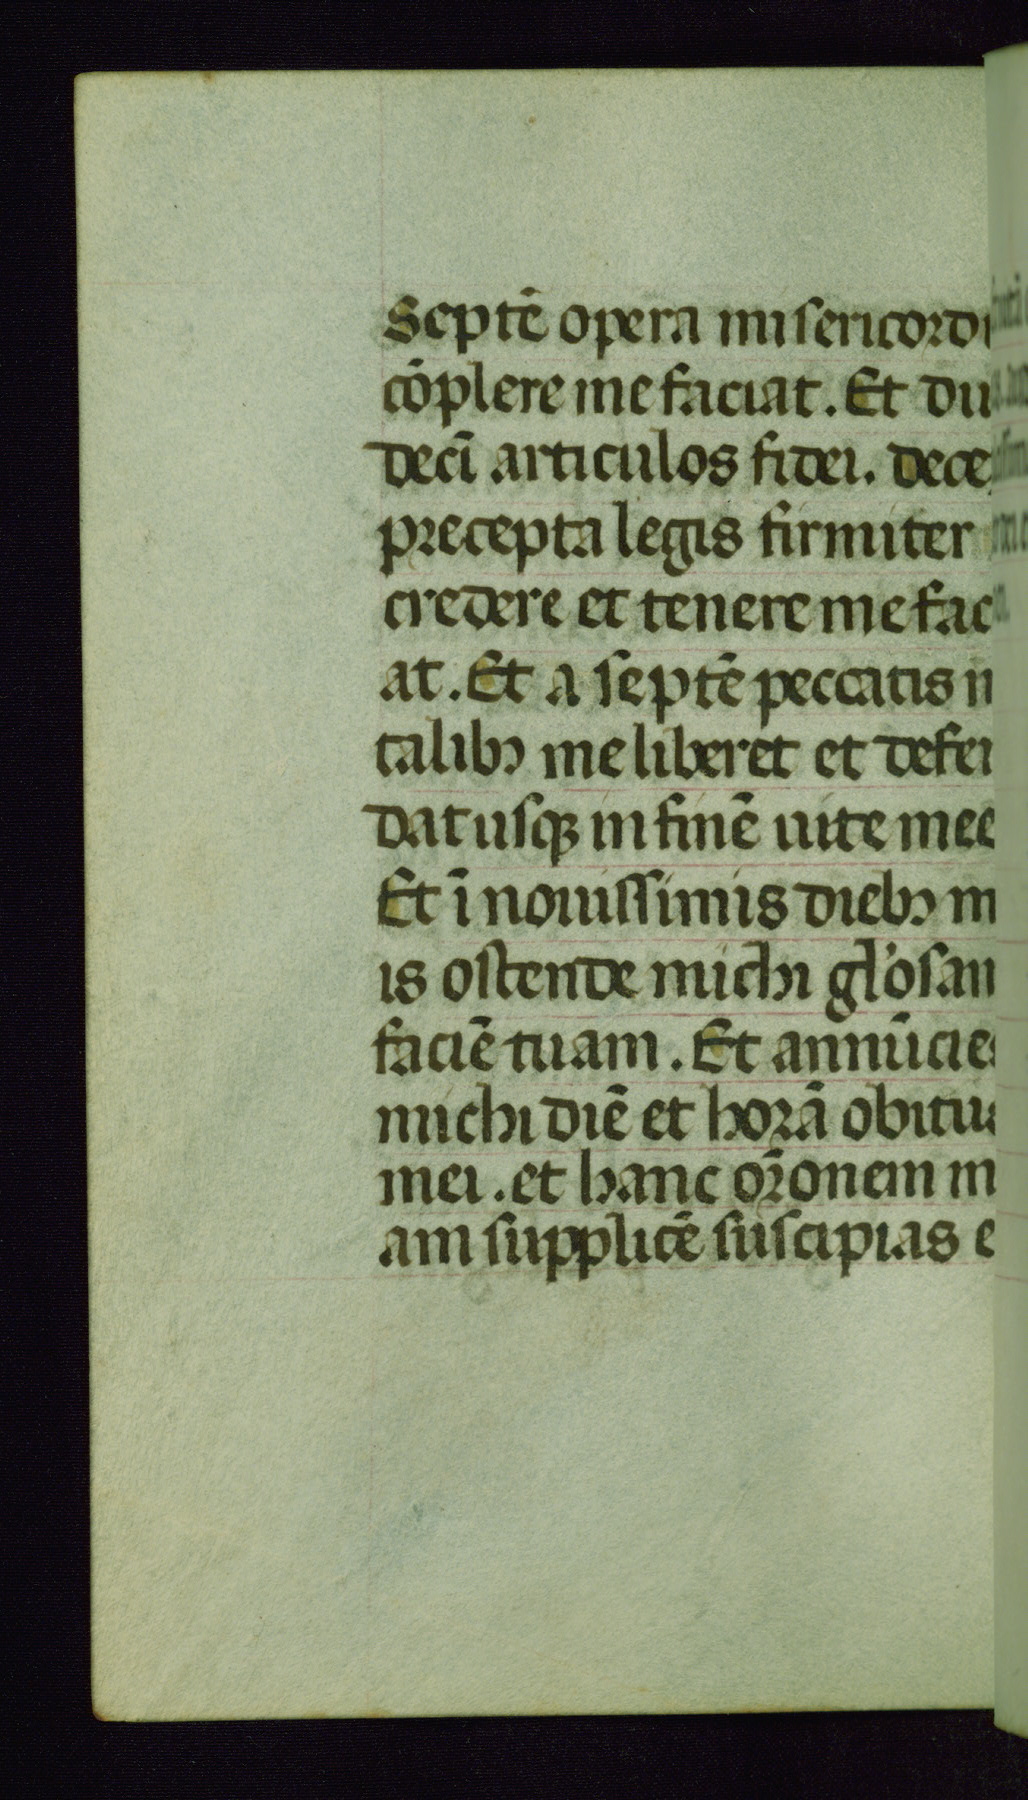 Septē opera misericordi
cōplere me faciat. Et du
decī articulos fidei. dece
precepta legis firmiter
credere et tenere me faci
at. Et a septē peccatis m
talibꝫ me liberet et defen
dat usqꝫ in finē uite mee
Et ī nouissimis diebꝫ m
is ostende michi gl'osam
faciē tuam. Et annūcies
michi diē et horā obitus
mei. et hanc or̄onem m
am supplicē suscipias e